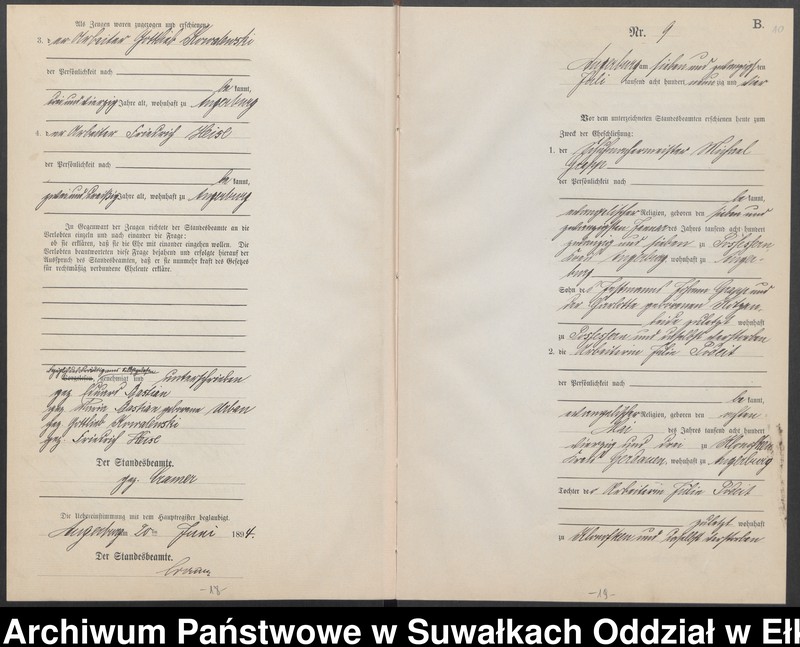 Als Zeugen waren zugezogen und erschienen
3. der Arbeiter Gottlieb Kowalewski
der Persönlichkeit nach
be kannt,
drei und vierzig Jahre alt, wohnhaft zu Angerburg
4. der Arbeiter Friedrich Heise
der Persönlichkeit nach
be kannt,
zwei und dreißig Jahre alt, wohnhaft zu Angerburg
In Gegenwart der Zeugen richtete der Standesbeamte an die
Verlobten einzeln und nach einander die Frage:
ob sie erklären, daß sie die Ehe mit einander eingehen wollen. Die
Verlobten beantworteten diese Frage bejahend und erfolgte hierauf der
Ausspruch des Standesbeamten, daß er sie nunmehr kraft des Gesetzes
für rechtmäßig verbundene Eheleute erkläre.
Vorgelesen, genehmigt und unterschrieben
gez. Eduard Bastian
gez. Bastian geborene Urban
gez. Gottlieb Kowalewski
gez. Friedrich Heise
Der Standesbeamte.
gez. Cramer
Die Uebereinstimmung mit dem Hauptregister beglaubigt
Angerburg am 20ten Juni 1894.
Der Standesbeamte.
Cramer
-18-
B.
Nr. 9
Angerburg am sieben und zwanzigsten
Juli tausend acht hundert neunzig und vier
Vor dem unterzeichneten Standesbeamten erschienen heute zum
Zweck der Eheschließung:
1. der Schuhmachermeister Michael
Grapp
der Persönlichkeit nach
be kannt,
evangelischer Religion, geboren den sieben und
zwanzigsten Januar des Jahres tausend acht hundert
zwanzig und sieben zu Possessern
Kreis Angerburg, wohnhaft zu Anger-
burg
Sohn des Johann Grapp und
der Charlotte geborenen
beide zuletzt wohnhaft
zu Possessern und daselbst verstorben
2. die Arbeiterin Julie
der Persönlichkeit nach
be kannt,
evangelischer Religion, geboren den ersten
Mai des Jahres tausend acht hundert
vierzig und drei zu
Kreis Gerdauen, wohnhaft zu Angerburg
Tochter der Arbeiterin Julie
zuletzt wohnhaft
zu und daselbst verstorben
-19-
Archiwum Państwowe w Suwałkach Oddział w Ełk